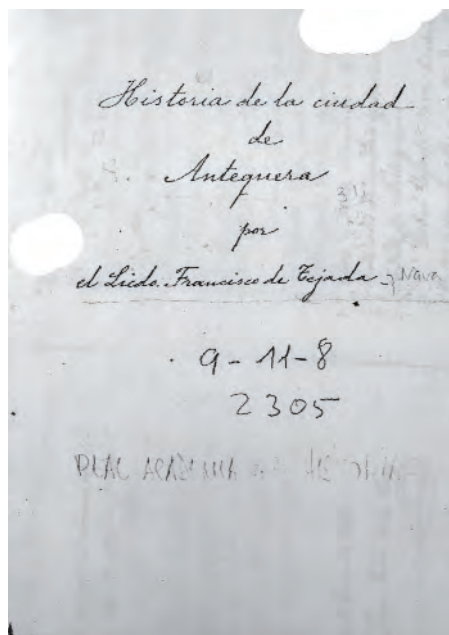 Historia de la ciudad
de
Antequera
por
el Licdo. Francisco de Tejada y Nava
9-11-8
2305
REAL ACADEMIA